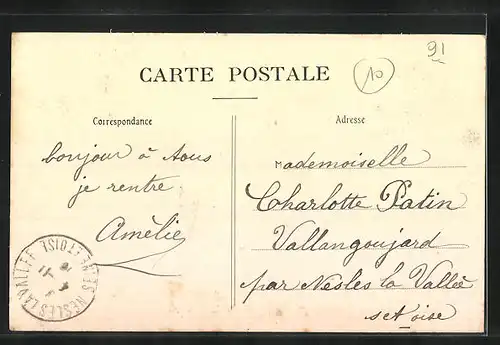 91
10
CARTE POSTALE
Correspondance
Adresse
bonjour à tous
je rentre
Amélie
Mademoiselle
Charlotte Patin
Vallangoujard
par Nesles la Vallée
set oise
NESLES LA VALLÉE
SEINE ET OISE